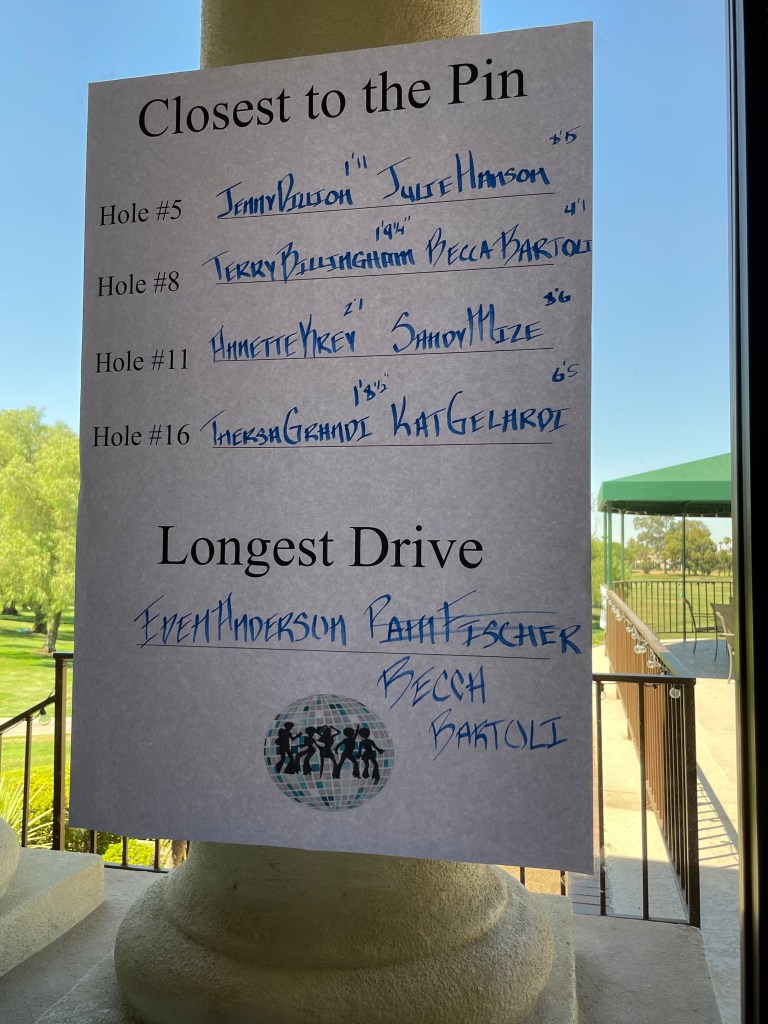 Closest to the Pin
Hole #5 JENNY DILLION 1'11 JULIE HANSON
Hole #8 TERRY BILLINGHAM 1'9¼" BECCA BARTOLI 4'1
Hole #11 ANNETTE KREY 2'1 SANDY MIZE 3'6
Hole #16 THERSA GRANDI 1'8½" KAT GELARDI 6'5
Longest Drive
EDEN ANDERSON PAM FISCHER
BECCA
BARTOLI